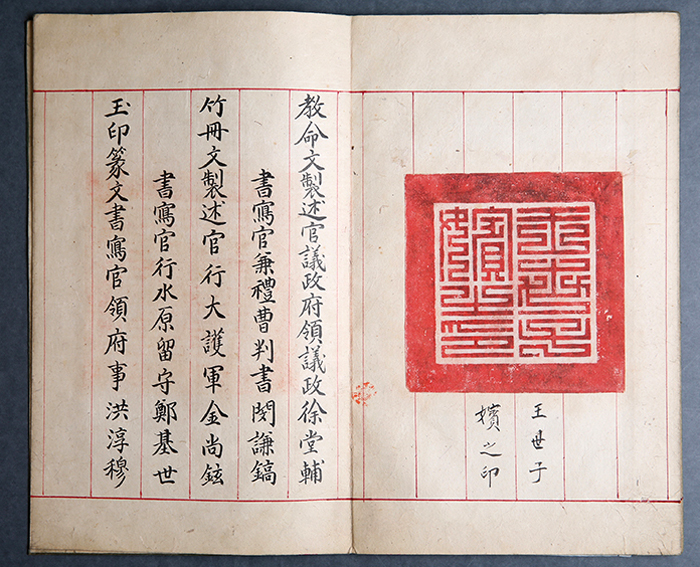 王世子
嬪之印
王世子
嬪之印
教命文製述官議政府領議政徐堂輔
書寫官兼禮曹判書閔謙鎬
竹冊文製述官行大護軍金尚鉉
書寫官行水原留守鄭基世
玉印篆文書寫官領府事洪淳穆